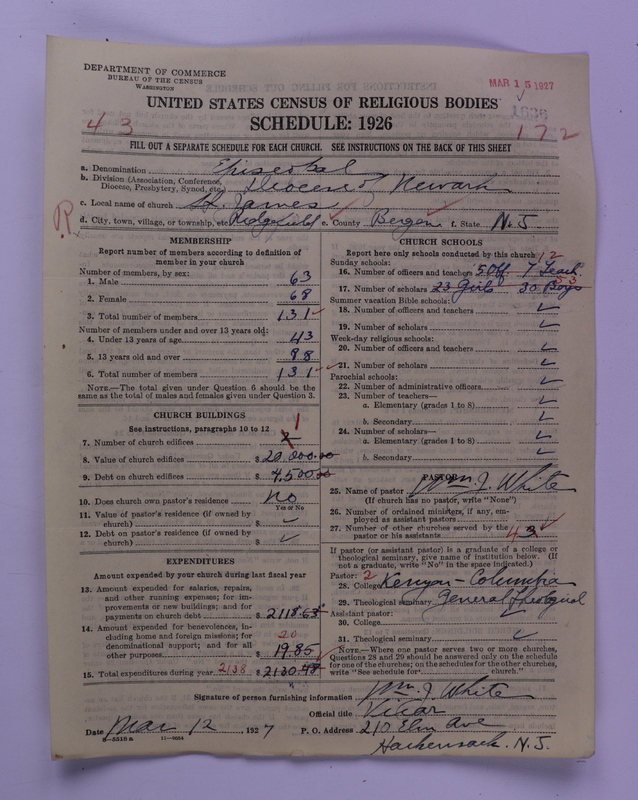 DEPARTMENT OF COMMERCE
BUREAU OF THE CENSUS
WASHINGTON
MAR 15 1927
UNITED STATES CENSUS OF RELIGIOUS BODIES
SCHEDULE: 1926
43
172
FILL OUT A SEPARATE SCHEDULE FOR EACH CHURCH. SEE INSTRUCTIONS ON THE BACK OF THIS SHEET
a. Denomination Episcopal
b. Division (Association, Conference, Diocese, Presbytery, Synod, etc.) Diocese of Newark
c. Local name of church St. James
d. City, town, village, or township, etc. Ridgefield e. County Bergen f. State N.J
R
MEMBERSHIP
Report number of members according to definition of
member in your church
Number of members, by sex:
1. Male 63
2. Female 68
3. Total number of members 131
Number of members under and over 13 years old:
4. Under 13 years of age 43
5. 13 years old and over 88
6. Total number of members 131
NOTE.—The total given under Question 6 should be the
same as the total of males and females given under Question 3.
CHURCH BUILDINGS
See instructions, paragraphs 10 to 12
1
7. Number of church edifices 2
8. Value of church edifices $ 20,000.00
9. Debt on church edifices $ 4,500.00
10. Does church own pastor's residence no
Yes or No
11. Value of pastor's residence (if owned by
church) $ ✓
12. Debt on pastor's residence (if owned by
church) $ ✓
EXPENDITURES
Amount expended by your church during last fiscal year
13. Amount expended for salaries, repairs,
and other running expenses; for im-
provements or new buildings; and for
payments on church debt $ 2118.63
14. Amount expended for benevolences, in-
cluding home and foreign missions; for
denominational support; and for all
20
other purposes $ 19.85
15. Total expenditures during year 2138 $ 2130.48
CHURCH SCHOOLS
Report here only schools conducted by this church
12
Sunday schools:
16. Number of officers and teachers 5 Off. 7 Teach
53
17. Number of scholars 23 Girls 30 Boys
Summer vacation Bible schools:
18. Number of officers and teachers ✓
19. Number of scholars ✓
Week-day religious schools:
20. Number of officers and teachers ✓
21. Number of scholars ✓
Parochial schools:
22. Number of administrative officers ✓
23. Number of teachers—
a. Elementary (grades 1 to 8) ✓
b. Secondary ✓
24. Number of scholars—
a. Elementary (grades 1 to 8) ✓
b. Secondary ✓
PASTOR
25. Name of pastor Wm. J. White
(If church has no pastor, write "None")
26. Number of ordained ministers, if any, em-
ployed as assistant pastors
27. Number of other churches served by the
pastor or his assistants 4
If pastor (or assistant pastor) is a graduate of a college or
theological seminary, give name of institution below. (If
not a graduate, write "No" in the space indicated.)
Pastor: 2
28. College Kenyon - Columbia
29. Theological seminary General Theological
Assistant pastor:
30. College ✓
31. Theological seminary ✓
NOTE.—Where one pastor serves two or more churches,
Questions 28 and 29 should be answered only on the schedule
for one of the churches; on the schedules for the other churches,
write "See schedule for church."
Signature of person furnishing information Wm. J. White
Official title Vicar
Date Mar 12, 1927 P. O. Address 210 Elm Ave
Hackensack. N.J.
8—5518 a 11—9054